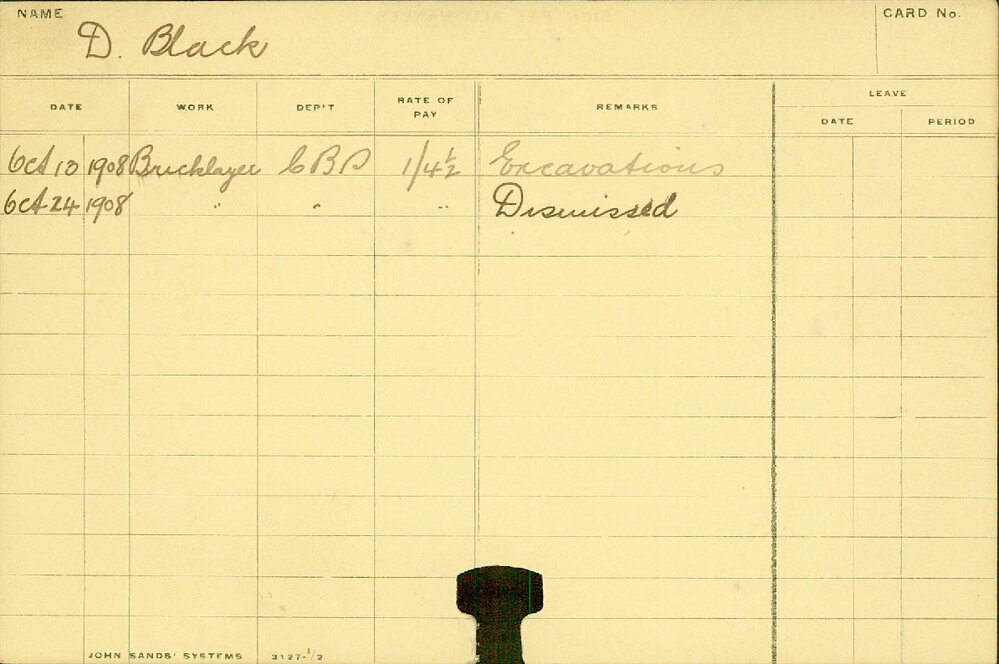 NAME D. Black CARD No.
DATE WORK DEP'T RATE OF PAY REMARKS LEAVE
DATE PERIOD
Oct 13 1908 Bricklayer CBD 1/4½ Excavations
Oct 24 1908 " " " Dismissed
JOHN SANDS' SYSTEMS 3127-1/2